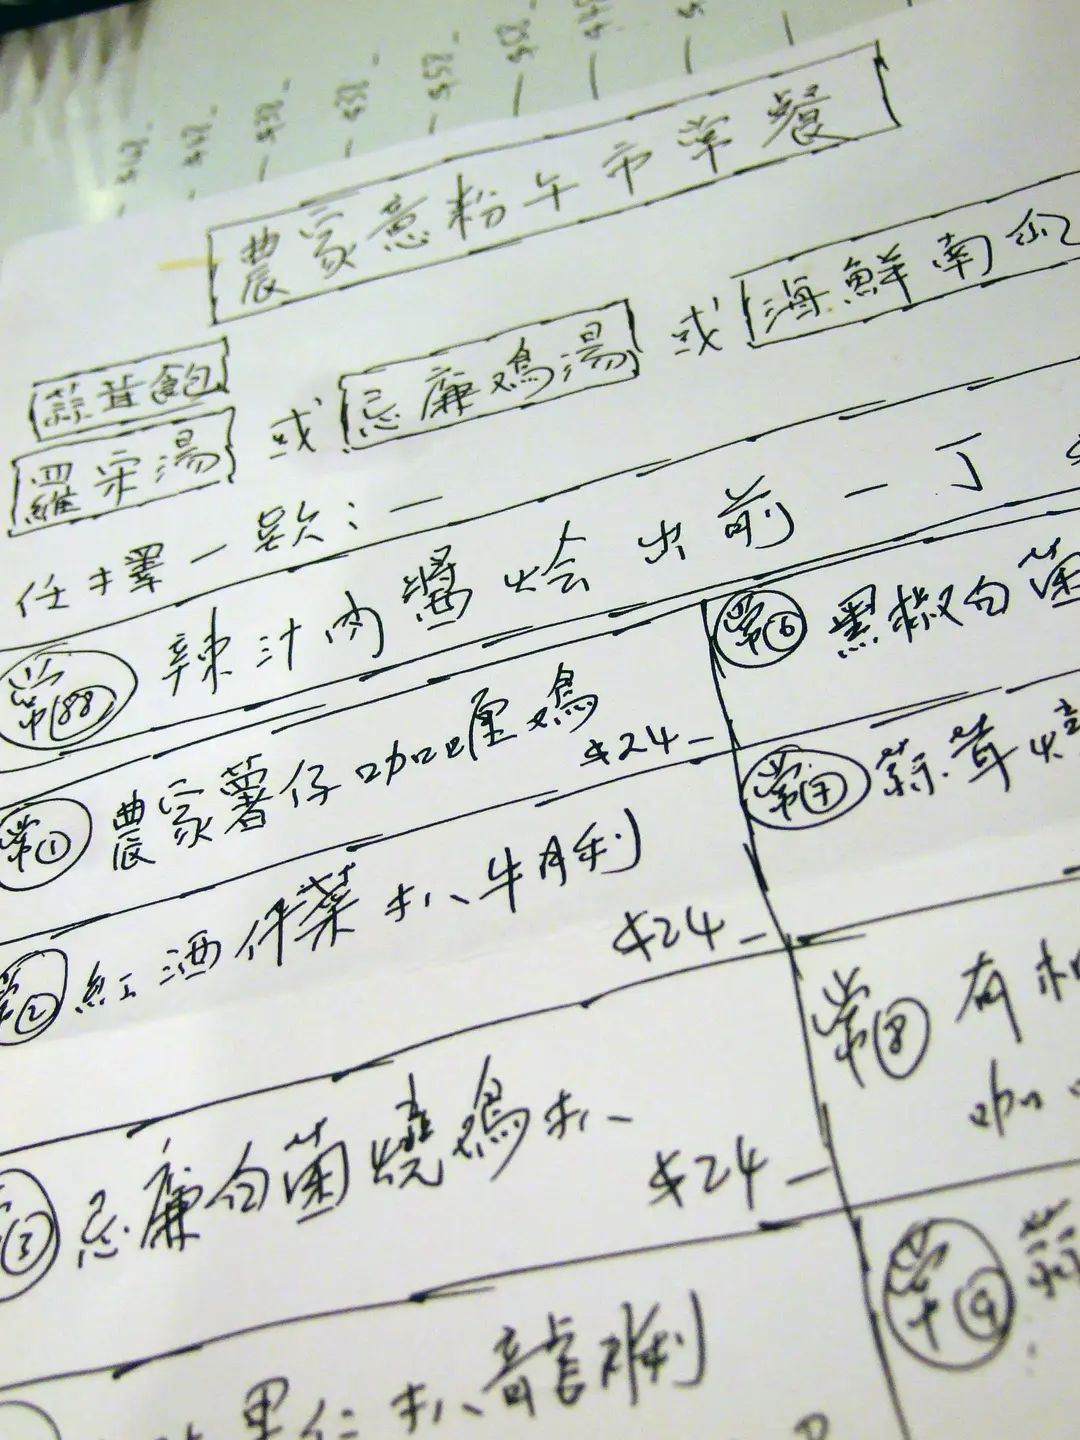 農家意粉午市常餐
蒜茸飽
羅宋湯 或 忌廉鳮湯 或 海鮮南瓜
任擇一款：—
常88 辣汁肉醬燴出前一丁
常① 農家薯仔咖喱鳮 $24-
常② 紅酒什菜扒牛脷 $24-
③ 忌廉白菌燒鳮扒 $24-
里仁扒龍脷
常⑥ 黑椒白菌
常⑦ 蒜茸燒
常⑧ 有
咖
常⑨